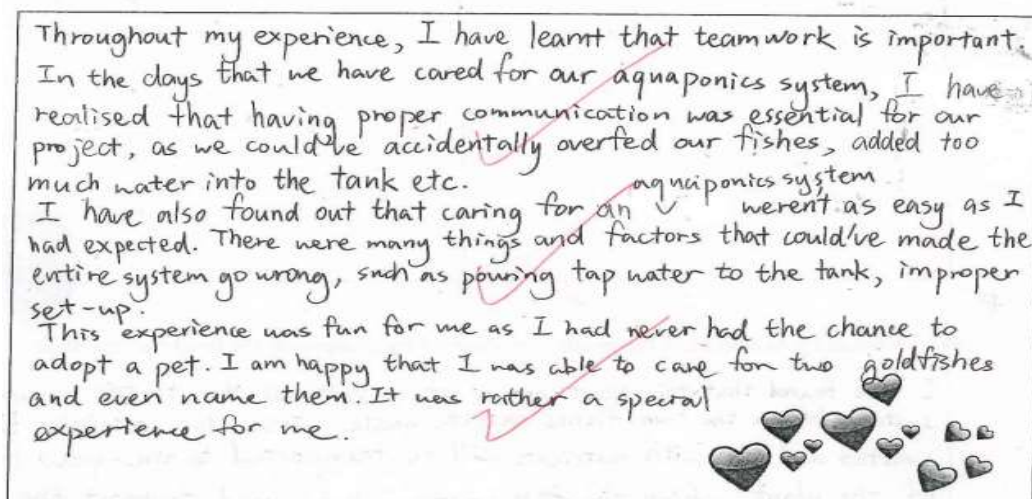 Throughout my experience, I have learnt that teamwork is important.
In the days that we have cared for our aquaponics system, I have
realised that having proper communication was essential for our
project, as we could've accidentally overfed our fishes, added too
much water into the tank etc.
aquaponics system
I have also found out that caring for an ✓ weren't as easy as I
had expected. There were many things and factors that could've made the
entire system go wrong, such as pouring tap water to the tank, improper
set-up.
This experience was fun for me as I had never had the chance to
adopt a pet. I am happy that I was able to care for two goldfishes
and even name them. It was rather a special
experience for me.